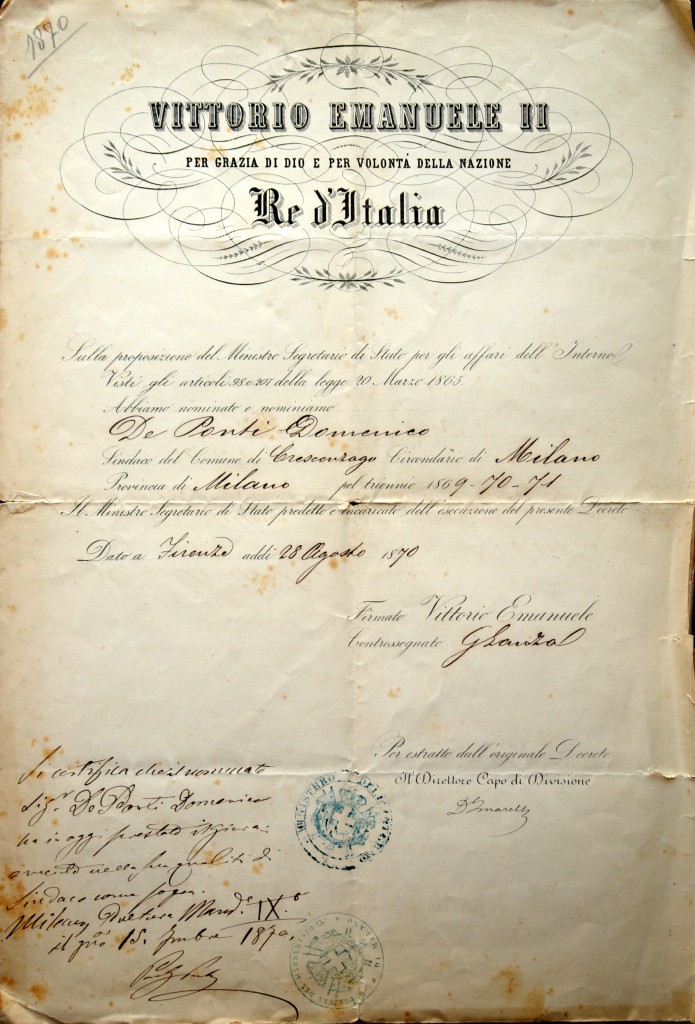 1870
VITTORIO EMANUELE II
PER GRAZIA DI DIO E PER VOLONTÁ DELLA NAZIONE
Re d'Italia
Sulla proposizione del Ministro Segretario di Stato per gli affari dell'Interno
Visti gli articoli 98 e 207 della legge 20 Marzo 1865.
Abbiamo nominato e nominiamo
De Ponti Domenico
Sindaco del Comune di Crescenzago Circondario di Milano
Provincia di Milano pel triennio 1869-70-71
Il Ministro Segretario di Stato predetto è incaricato dell'esecuzione del presente Decreto
Dato a Firenze addì 28 Agosto 1870
Firmato Vittorio Emanuele
Controssegnato G Lanza
Per estratto dall'originale Decreto
Il Direttore Capo di Divisione
Si certifica che il nominato
Sigr. De Ponti Domenico
ha in oggi prestato il giura-
mento nella sua qualità di
Sindaco come sopra.
Milano Pretura Mand.º IX.º
il 15. 7mbre 1870.
MINISTERO DELL'INTERNO